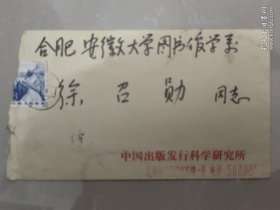 合肥安徽大学图书馆学系
徐召勋 同志
中国出版发行科学研究所